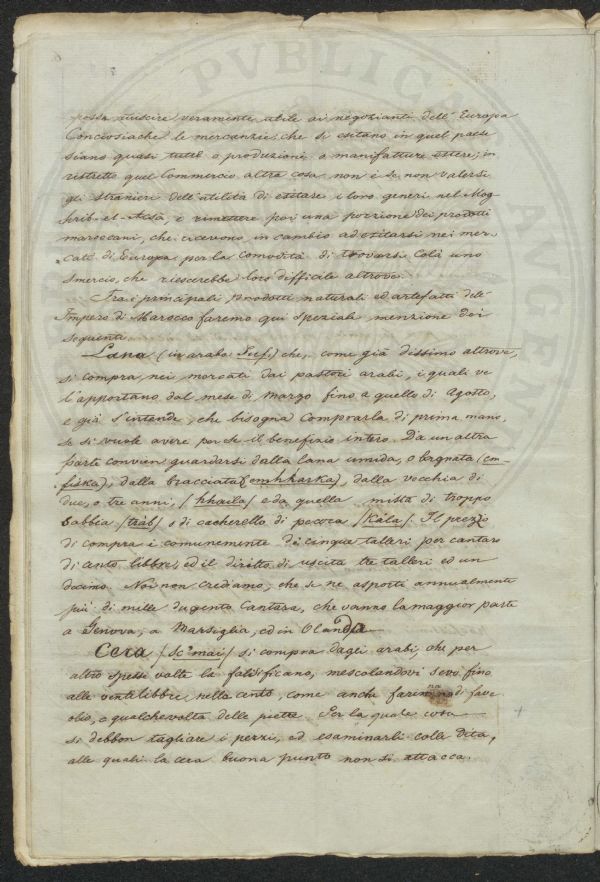 possa riuscire veramente utile ai negozianti dell' Europa
Conciosiachè le mercanzie, che si esitano in quel paese
siano quasi tutte o produzioni o manifatture estere; in
ristretto quel Commercio altra cosa non è se non valersi
gli stranieri dell' utilità di esitare i loro generi nel Mog-
hrib-el-Acsa, e rimettere poi una porzione dei prodotti
maroccani, che ricevono in cambio ad esitarsi nei mer-
cati di Europa per la comodità di trovarsi Colà uno
smercio, che riescerebbe loro difficile altrove.
Tra i principali prodotti naturali ed artefatti dell'
Impero di Marocco faremo qui speziale menzione dei
seguenti
Lana (in arabo Seefi) che, come già dissimo altrove,
si compra nei mercati dai pastori arabi, i quali ve
l'apportano dal mese di Marzo fino a quello di Agosto,
e già s'intende, che bisogna comprarla di prima mano,
se si vuole avere poi che il benefizio intero. Da un altra
parte convien guardarsi dalla lana umida, o bagnata (em-
fiska), dalla bracciata (emhharka), dalla vecchia di
due, o tre anni, (hhaila) e da quella mista di troppo
Sabbia (tràb) e di cacherello di pecora (Kála). Il prezzo
di compra è comunemente di cinque talleri per cantaro
di cento libbre, ed il diritto di uscita tre talleri ed un
decimo. Noi non crediamo, che se ne asporti annualmente
più di mille dugento Cantara, che vanno la maggior parte
a Genova, a Marsiglia, ed in Olanda
Cera (Sc'mai) si compra dagli arabi, che per
altro spesse volte la falsificano, mescolandovi sevo fino
alle venti libbre nella cento, come anche farina di fave
olio, e qualchevolta delle pietre. Per la quale cosa
si debbon tagliare i pezzi, ed esaminarli colle Dita,
alle quali la cera buona punto non si attacca.